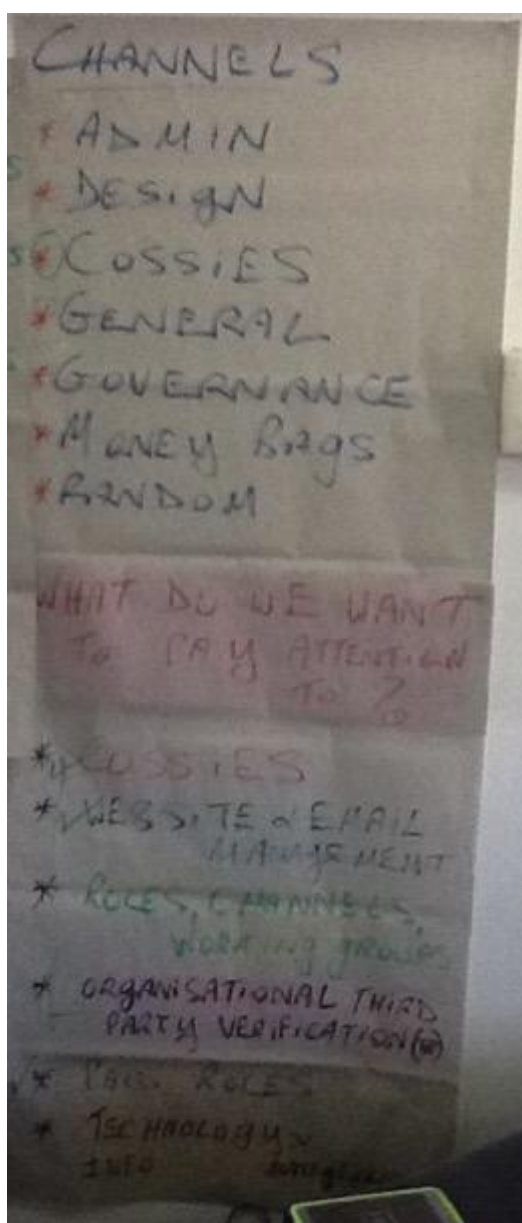 CHANNELS
* ADMIN
* DESIGN
* COSSIES
* GENERAL
* GOVERNANCE
* MONEY BAGS
* RANDOM
WHAT DO WE WANT
TO PAY ATTENTION
TO ?
* COSSIES
* WEBSITE & EMAIL
MANAGEMENT
* ROLES, CHANNELS,
WORKING GROUPS
* ORGANISATIONAL THIRD
PARTY VERIFICATION
* ROLES
* TECHNOLOGY
INFO